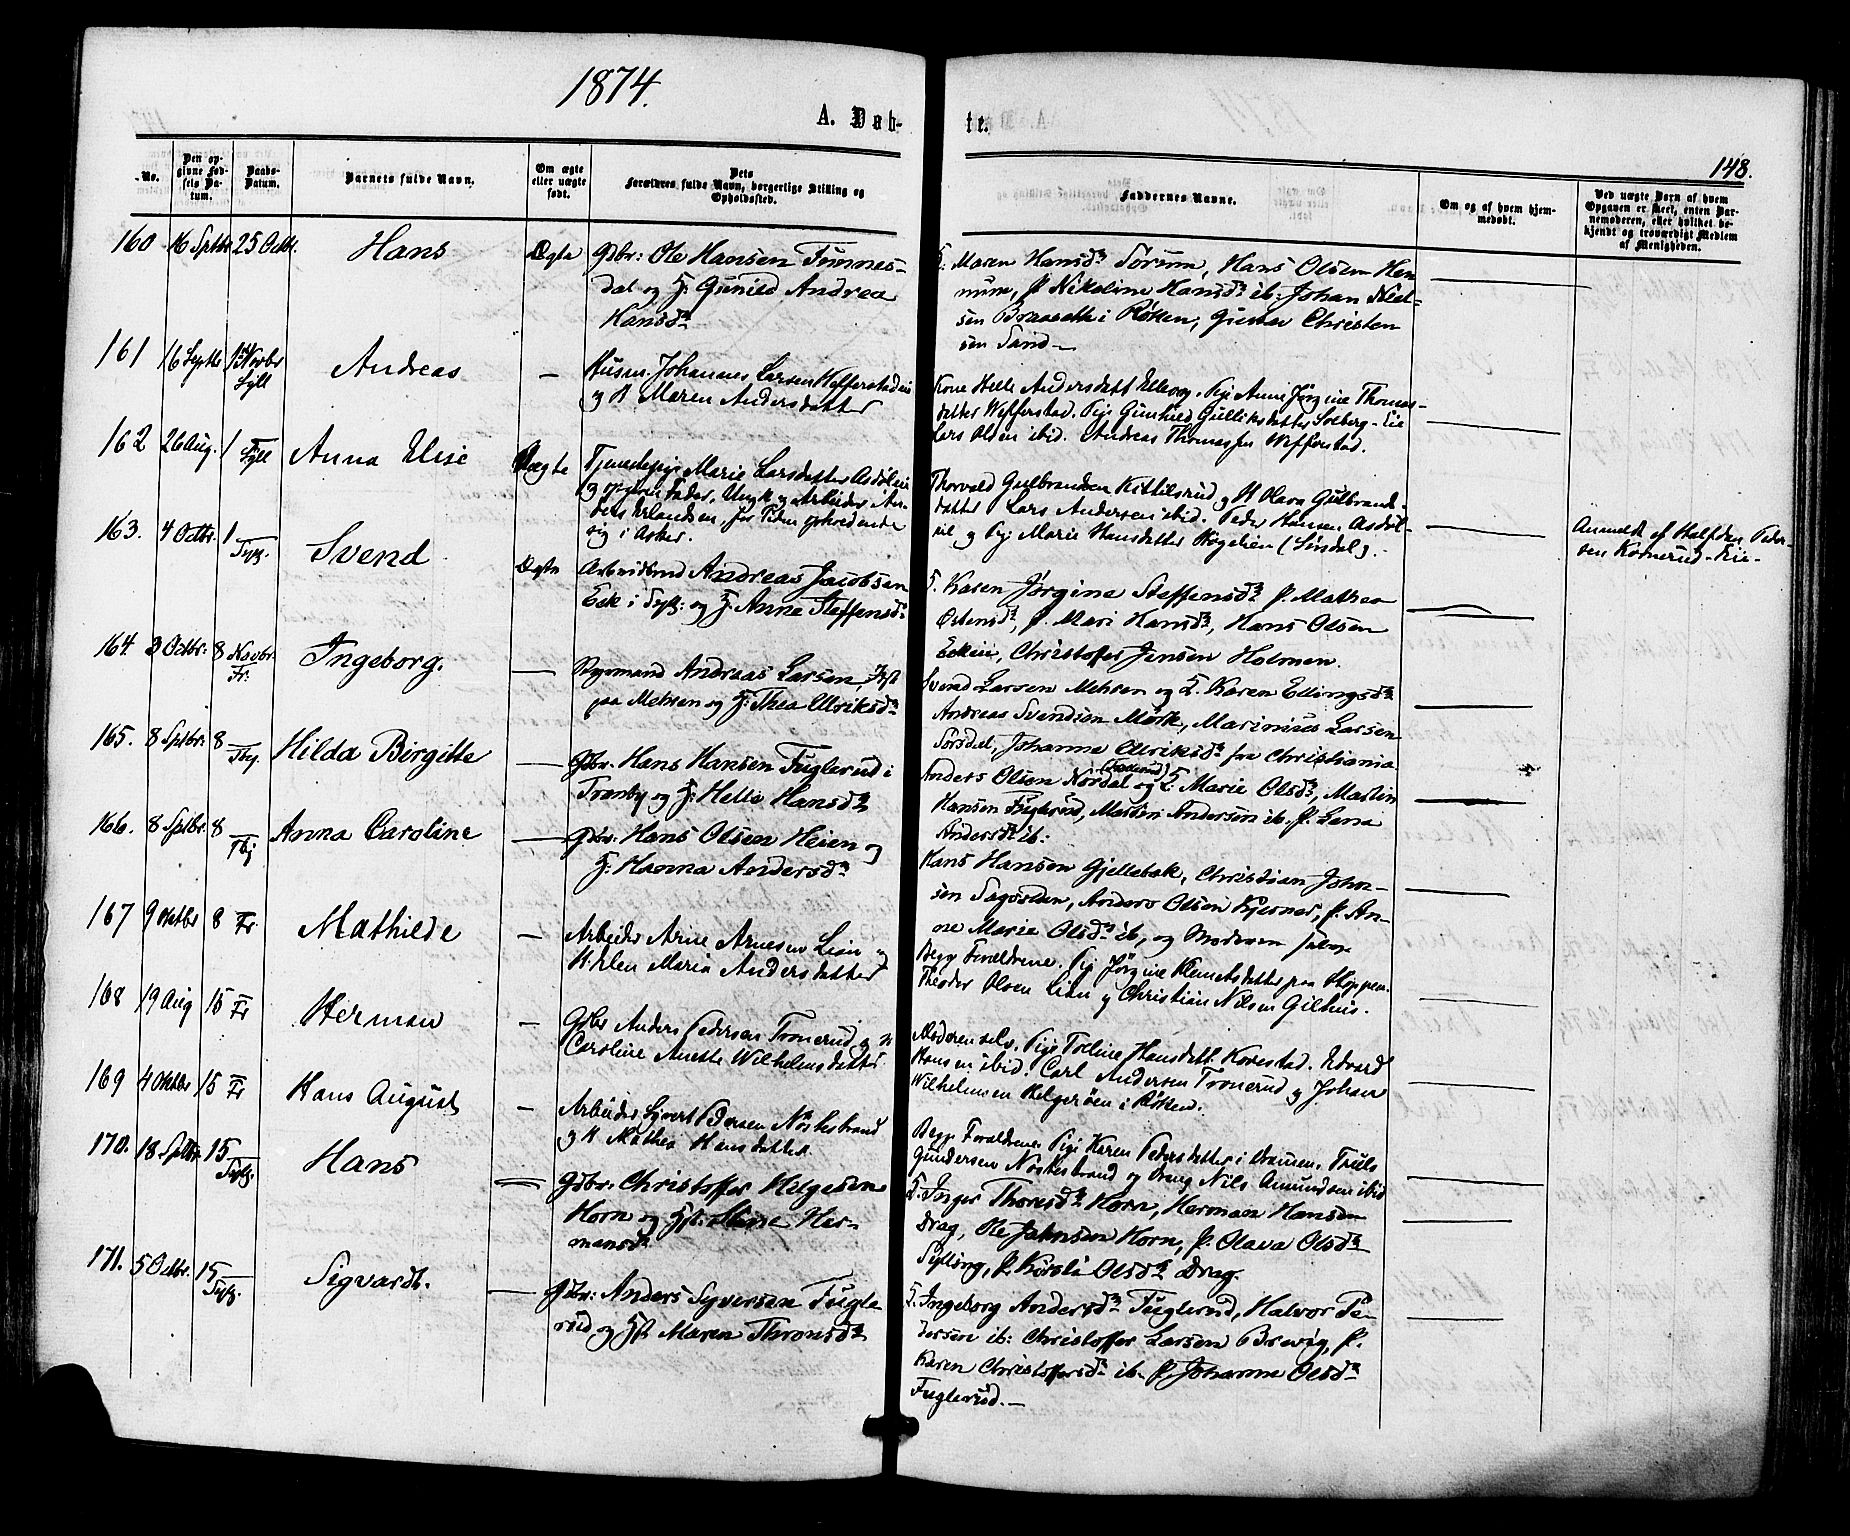 1874.
A. Døb-
te.
148.
No.
Den op-
givne Fød-
sels Da-
tum.
Daabs-
Datum.
Barnets fulde Navn.
Om ægte
eller uægte
født.
Dets
Forældres fulde Navn, borgerlige Stilling og
Opholdssted.
Faddernes Navne.
Om og af hvem hjem-
medøbt.
Ved uægte Børn af hvem
Opgaven er skeet, enten Bar-
nemoderen, eller hvilket be-
kjendt og troværdigt Medlem
af Menigheden.
160 16 Septbr 25 Octbr. Hans Ægte Gdbr: Ole Hansen Tunnes-
dal og H. Gunild Andrea
Hansdr
H. Maren Hansdr Sørum, Hans Olsen Hen-
num, P. Nikoline Hansdr ib: Johan Niel-
sen i Røken, Gustav Christen
sen Sand
161 16 Septbr 1 Novbr Sylt Andreas — Husm. Johannes Larsen Wefferstadeie
og K Maren Andersdatter
Kone Helle Andersdatt Elleog. Pige Anne Jørgine Thomas-
datter Wefferstad. Pige Gunhild Gulliksdatter Solberg-Eie
Lars Olsen ibid. Andreas Thomassen Wefferstad.
162 26 Aug. 1 Sylt Anna Elise Uægte Tjenestepige Marie Larsdatter Asdøleie
og opgiven Fader, Ungk og Arbeider An-
ders Erlandsen, for Tiden opholdende
sig i Asker.
Thorvald Gulbrandsen Kittilsrud og K Olava Gulbrands-
datter Lars Andersen ibid. Peder Hansen Asdøl-
eie og Pig Marie Hansdatter Høgelien (Lindal).
Anmeldt af Halfden Peder-
sen Kornerud-Eie-
163. 4 Octbr. 1 Sylg Svend Ægte Arbeidsmd Andreas Jacobsen
Eek i Sylg: og H. Anne Steffensdr
H. Karen Jørgine Steffensdr P. Mathea
Østensdr, P. Mari Hansdr, Hans Olsen
Eekeie, Christoffer Jensen Holmen.
164. 3 Octbr: 8 Novbr. Fr. Ingeborg. — Bygmand Andreas Larsen, Inst
paa Mehren og H: Thea Ulriksdr
Svend Larsen Mehren og H. Karen Ellingsdr
Andreas Svendsen Mørk, Marinius Larsen
Sørsdal, Johanne Ulriksdr fra Christiania
165. 8 Septbr: 8 Thg. Hilda Birgitte — Gdbr. Hans Hansen Fuglerud i
Tranby og H: Helle Hansdr
Anders Olsen Nordal og H: Marie Olsdr, Martin
Hansen Fuglerud, Martin Andersen ib. P. Lena
Andersdr ib:
166. 8 Septbr. 8 Thg Anna Caroline — Gdbr. Hans Olsen Heien og
H: Hanna Andersdr
Hans Hansen Gjellebæk, Christian Johan-
sen Sagosdsen, Anders Olsen Kjesner, P. An-
ne Marie Olsdr ib, og Moderen selv
167 9 Oktbr 8 Fr. Mathilde — Arbeider Arne Arnesen Lian og
K Elen Maria Andersdatter
Begge Forældrene. Pig Jørgine Klemetsdatter paa Hoppen.
Theodor Olsen Lian og Christian Nilsen Gilhus.
168 19 Aug 15 Fr Herman — Gdbr Anders Pedersen Tronerud og K
Caroline Anette Wilhelmsdatter
Moderen selv. Pige Tolline Hansdatt. Kovestad. Edvard
Hansen ibid. Carl Andersen Tronerud og Johan
Wilhelmsen Helgerøen i Røken.
169 4 Oktbr 15 Fr Hans August — Arbeider Syvert Pedersen Nøstebrand
og K Mathea Hansdatter
Begge Forældrene. Pige Karen Pedersdatter i Dramen. Truls
Gundersen Nøstebrand og Ung Nils Amundsen ibid
170. 18 Septbr 15 Sylg. Hans — Gdbr: Christoffer Helgesen
Horn og Hst. Stine Her-
mansdr
H. Inger Thoresdr Horn, Herman Hansen
Drag, Ole Jahnsen Horn, P. Olava Olsdr
Sylling, P. Kirsti Olsdr Drag.
171. 5 Octbr. 15 Sylg. Sigvardt. — Gdbr: Anders Syversen Fugle-
rud og Hst Maren Thronsdr
H. Ingeborg Andersdr Fuglerud, Halvor Pe-
dersen ib: Christoffer Larsen Brevig, P.
Karen Christoffersdr ib. P. Johanne Olsdr
Fuglerud.—